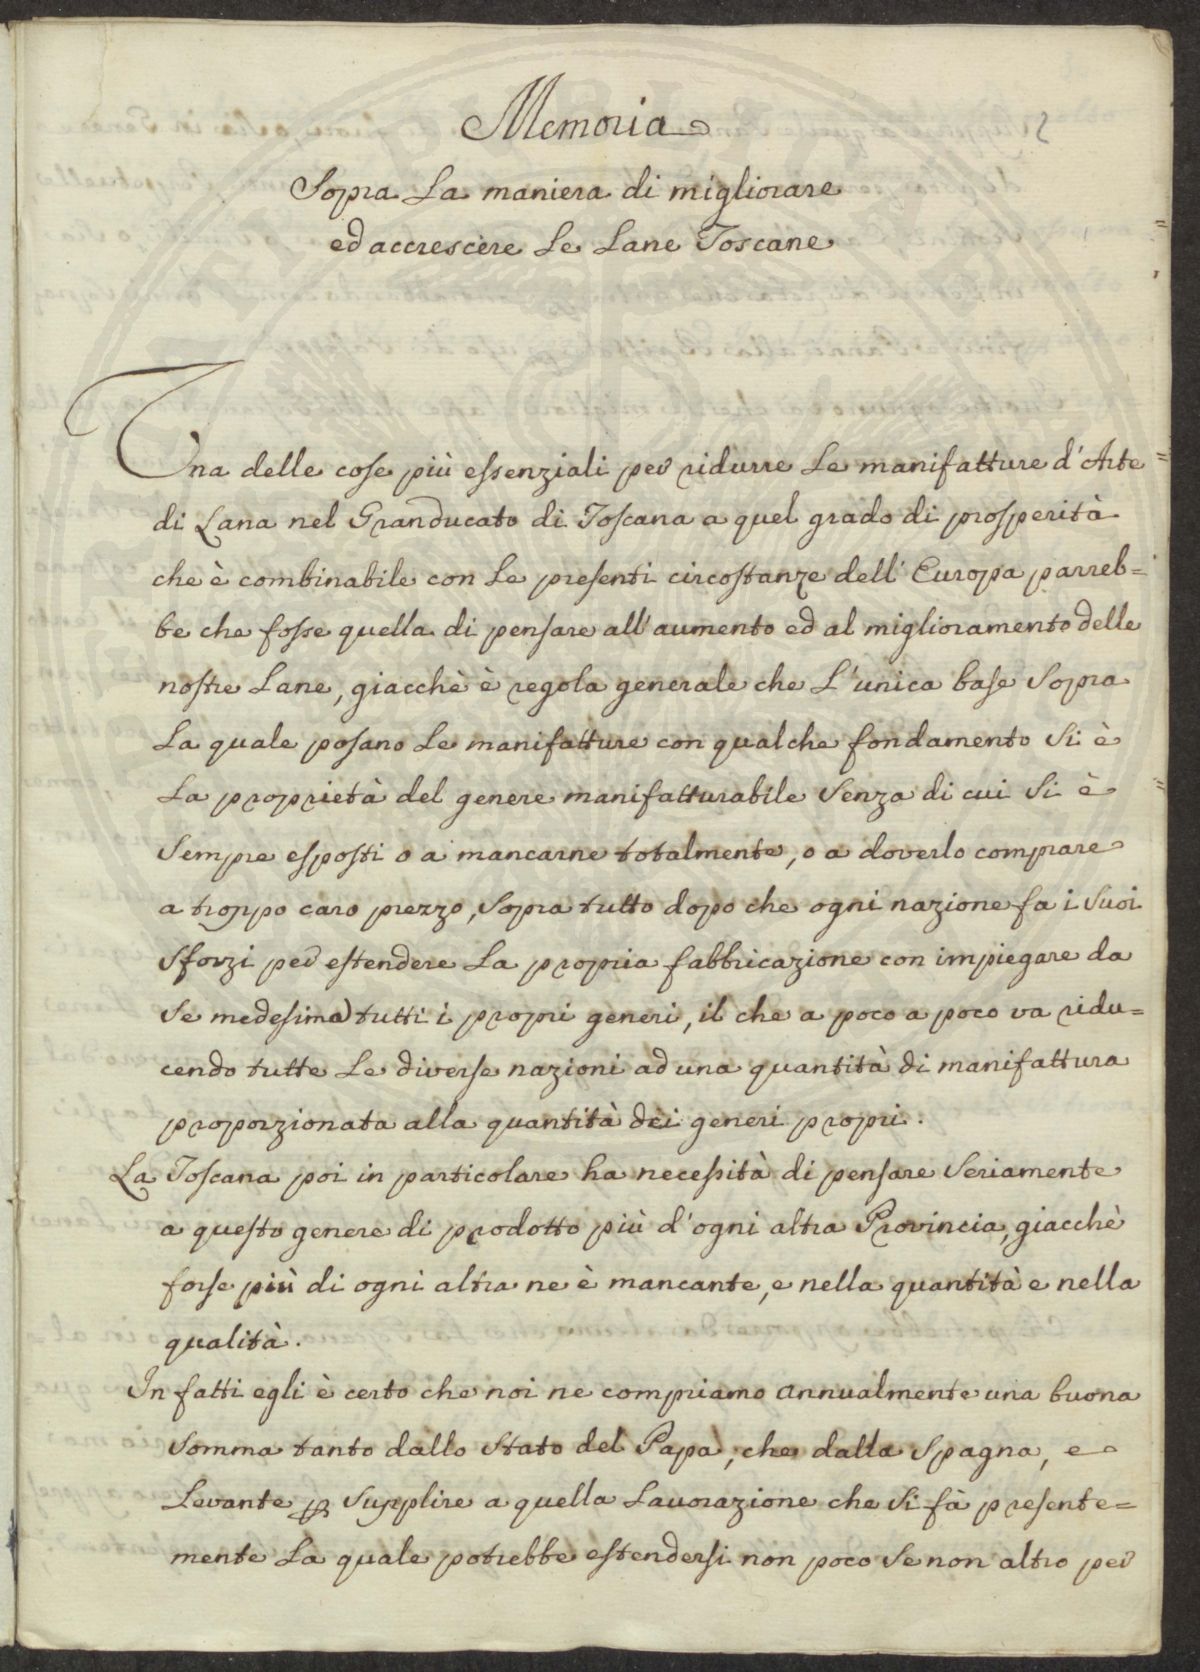 Memoria
Sopra La maniera di migliorare
ed accrescere Le Lane Toscane
Una delle cose più essenziali per ridurre Le manifatture d'Arte
di Lana nel Granducato di Toscana a quel grado di prosperità
che è combinabile con Le presenti circostanze dell' Europa parreb=
be che fosse quella di pensare all'aumento ed al miglioramento delle
nostre Lane, giacchè è regola generale che L'unica base Sopra
La quale posano Le manifatture con qualche fondamento Si è
La proprietà del genere manifatturabile Senza di cui Si è
Sempre esposti o a mancarne totalmente, o a doverlo comprare
a troppo caro prezzo, Sopra tutto dopo che ogni nazione fa i Suoi
Sforzi per estendere La propria fabbricazione con impiegare da
Se medesima tutti i propri generi, il che a poco a poco va ridu=
cendo tutte Le diverse nazioni ad una quantità di manifattura
proporzionata alla quantità dei generi propri.
La Toscana poi in particolare ha necessità di pensare Seriamente
a questo genere di prodotto più d'ogni altra Provincia, giacchè
forse più di ogni altra ne è mancante, e nella quantità e nella
qualità.
In fatti egli è certo che noi ne compriamo annualmente una buona
Somma tanto dallo Stato del Papa, che dalla Spagna, e
Levante ꝑ Supplire a quella Lavorazione che Si fà presente=
mente La quale potrebbe estendersi non poco Se non altro per